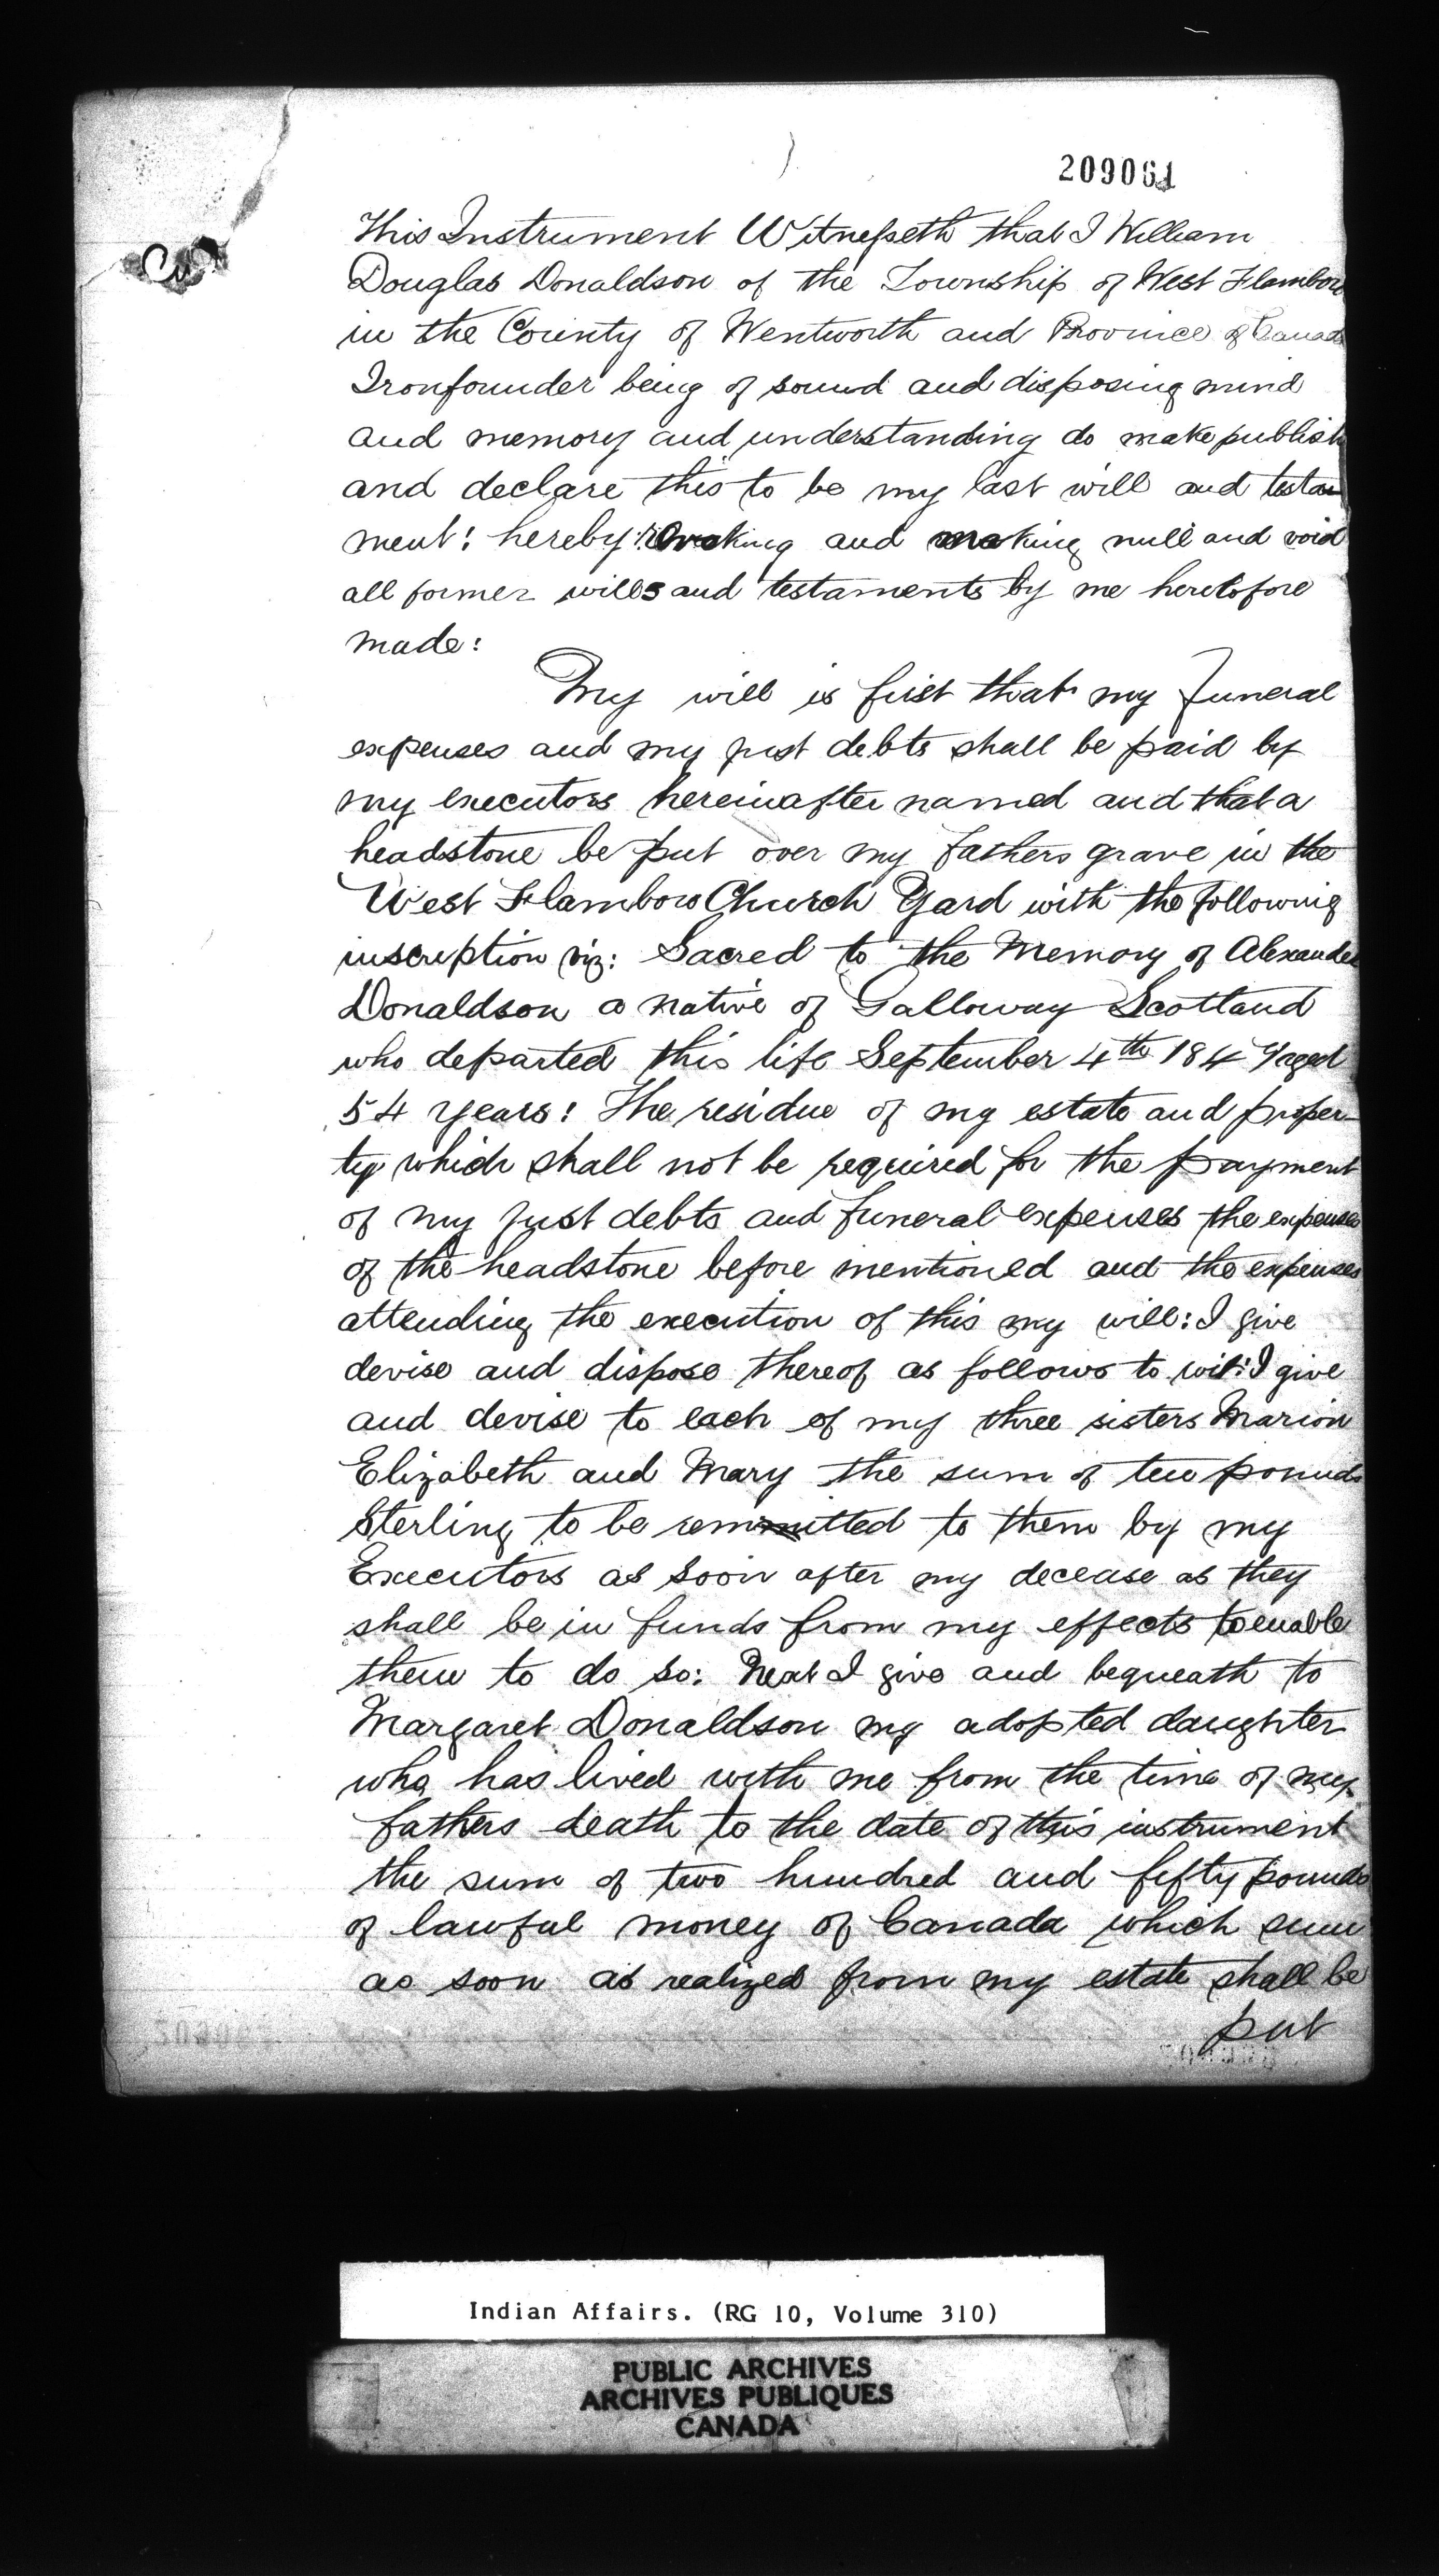 209061
This Instrument Witnesseth that I William
Douglas Donaldson of the Township of West Flamboro
in the County of Wentworth and Province of Canada
Ironfounder being of sound and disposing mind
and memory and understanding do make publish
and declare this to be my last will and testa
ment: hereby revoking and making null and void
all former wills and testaments by me heretofore
made:
My will is first that my Funeral
expenses and my just debts shall be paid by
my executors hereinafter named and that a
headstone be put over my fathers grave in the
West Flamboro Church Yard with the following
inscription viz: Sacred to the Memory of Alexander
Donaldson a native of Galloway Scotland
who departed this life September 4th 1847 aged
54 years: The residue of my estate and proper-
ty which shall not be required for the payment
of my just debts and funeral expenses the expenses
of the headstone before mentioned and the expenses
attending the execution of this my will: I give
devise and dispose thereof as follows to wit: I give
and devise to each of my three sisters Marion
Elizabeth and Mary the sum of ten pounds
Sterling to be remmitted to them by my
Executors as soon after my decease as they
shall be in funds from my effects to enable
them to do so: Next I give and bequeath to
Margaret Donaldson my adopted daughter
who has lived with me from the time of my
fathers death to the date of this instrument
the sum of two hundred and fifty pounds
of lawful money of Canada which sum
as soon as realized from my estate shall be
put
Indian Affairs. (RG 10, Volume 310)
PUBLIC ARCHIVES
ARCHIVES PUBLIQUES
CANADA